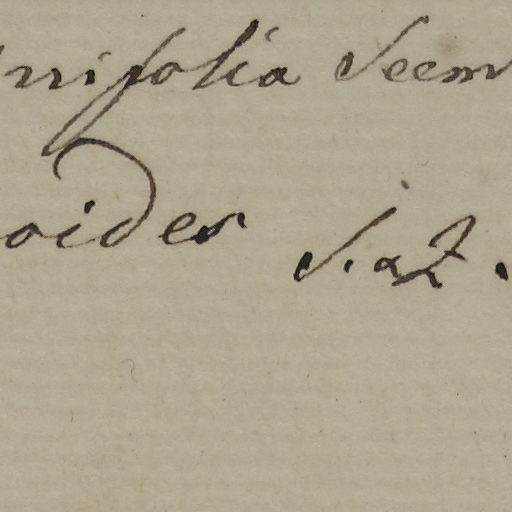 nrifolia Seem
oides S. a Z.